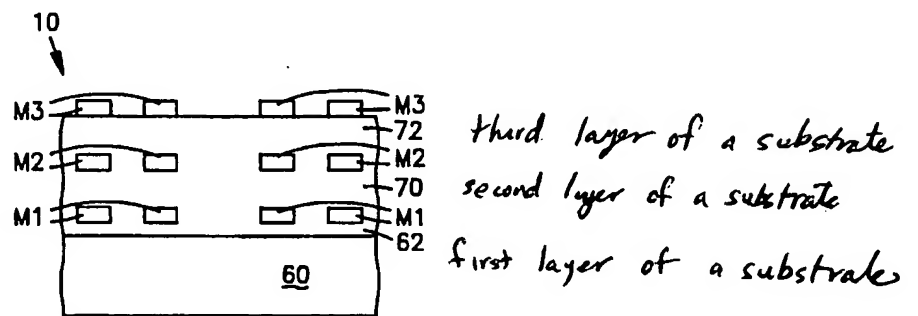 10
M3 M3
72
third layer of a substrate
M2 M2
70
second layer of a substrate
M1 M1
62
first layer of a substrate
60